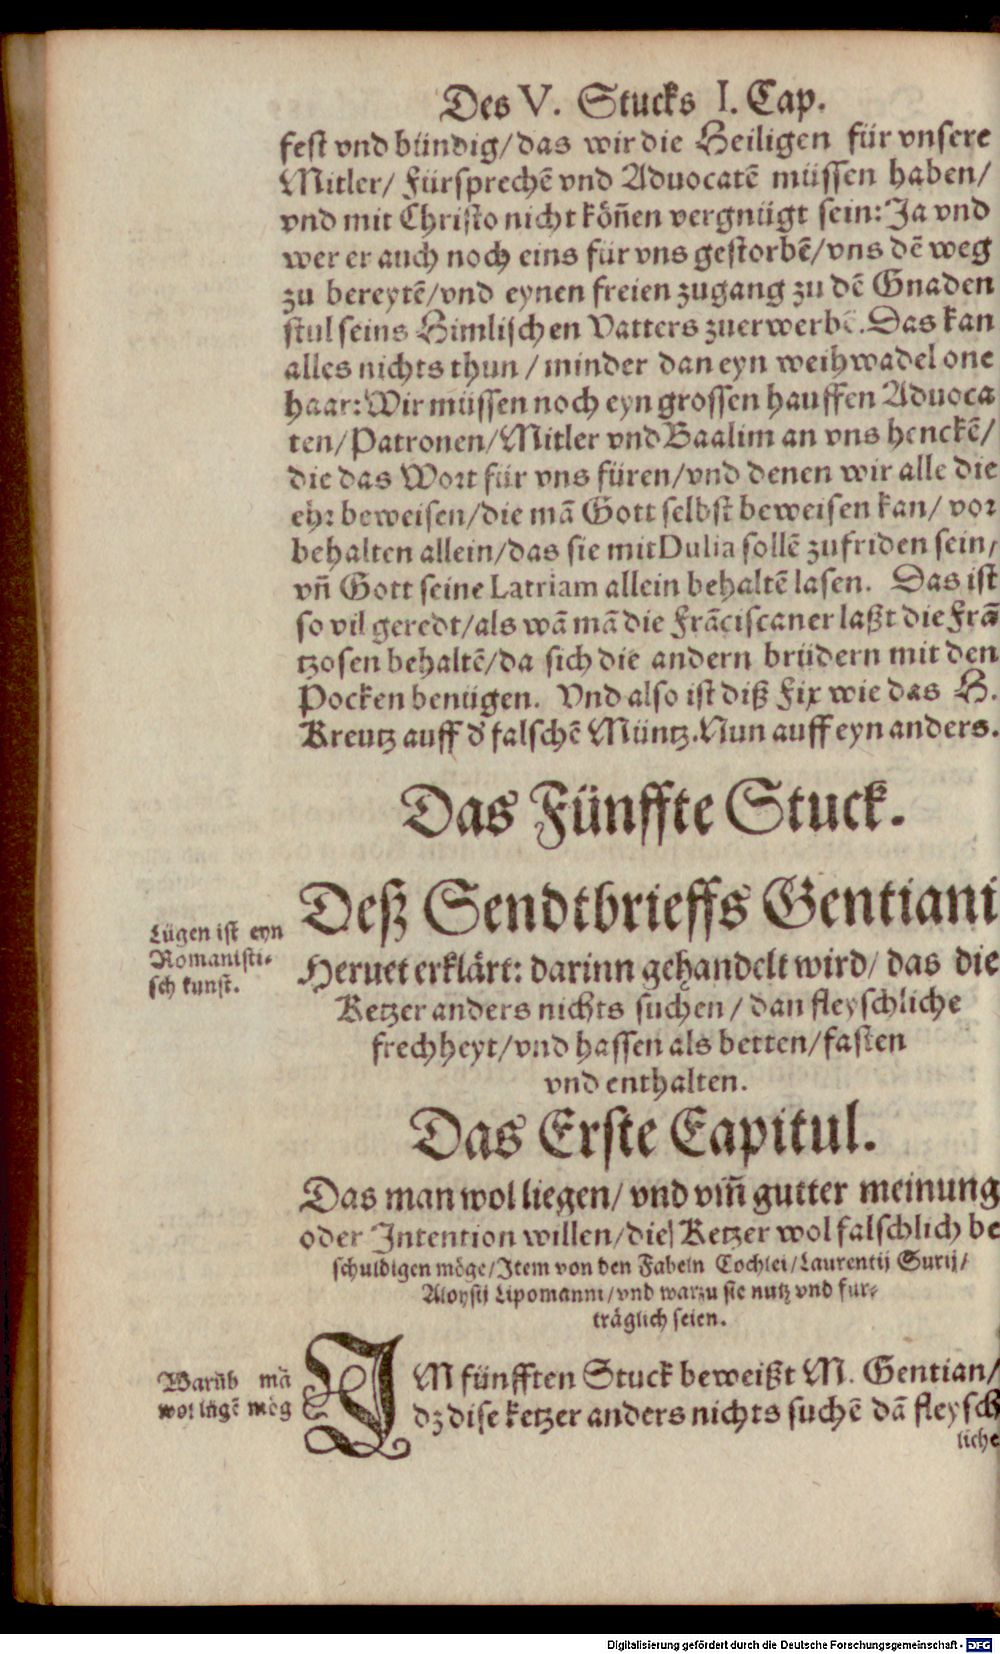 Des V. Stucks I. Cap.
fest vnd bündig/ das wir die Heiligen für vnsere
Mitler/ Fürsprechẽ vnd Aduocatẽ müssen haben/
vnd mit Christo nicht köñen vergnügt sein: Ja vnd
wer er auch noch eins für vns gestorbẽ/ vns dẽ weg
zu bereytẽ/ vnd eynen freien zugang zu dẽ Gnaden
stul seins Himlischen Vatters zuerwerbẽ. Das kan
alles nichts thun / minder dan eyn weihwadel one
haar: Wir müssen noch eyn grossen hauffen Aduoca
ten/ Patronen/ Mitler vnd Baalim an vns henckẽ/
die das Wort für vns füren/ vnd denen wir alle die
ehr beweisen/ die mã Gott selbst beweisen kan/ vor
behalten allein/ das sie mit Dulia sollẽ zufriden sein/
vñ Gott seine Latriam allein behaltẽ lasen. Das ist
so vil geredt/ als wã mã die Frãciscaner laßt die Frã
tzosen behaltẽ/ da sich die andern brüdern mit den
Pocken benügen. Vnd also ist diß Fix wie das H.
Kreutz auff d' falschẽ Müntz. Nun auff eyn anders.
Das Fünffte Stuck.
Deß Sendtbrieffs Gentiani
Lügen ist eyn
Romanisti-
sch kunst.
Heruet erklärt: darinn gehandelt wird/ das die
Ketzer anders nichts suchen / dan fleyschliche
frechheyt/ vnd hassen als betten/ fasten
vnd enthalten.
Das Erste Capitul.
Das man wol liegen/ vnd vm̃ gutter meinung
oder Intention willen/ die Ketzer wol falschlich be
schuldigen möge/ Item von den Fabeln Cochlei/ Laurentij Surij/
Aloysij Lipomanni/ vnd warzu sie nutz vnd für-
träglich seien.
Warũb mã
wol lügẽ mög
IM fünfften Stuck beweißt M. Gentian/
dz dise ketzer anders nichts suchẽ dã fleysch
liche
Digitalisierung gefördert durch die Deutsche Forschungsgemeinschaft - DFG